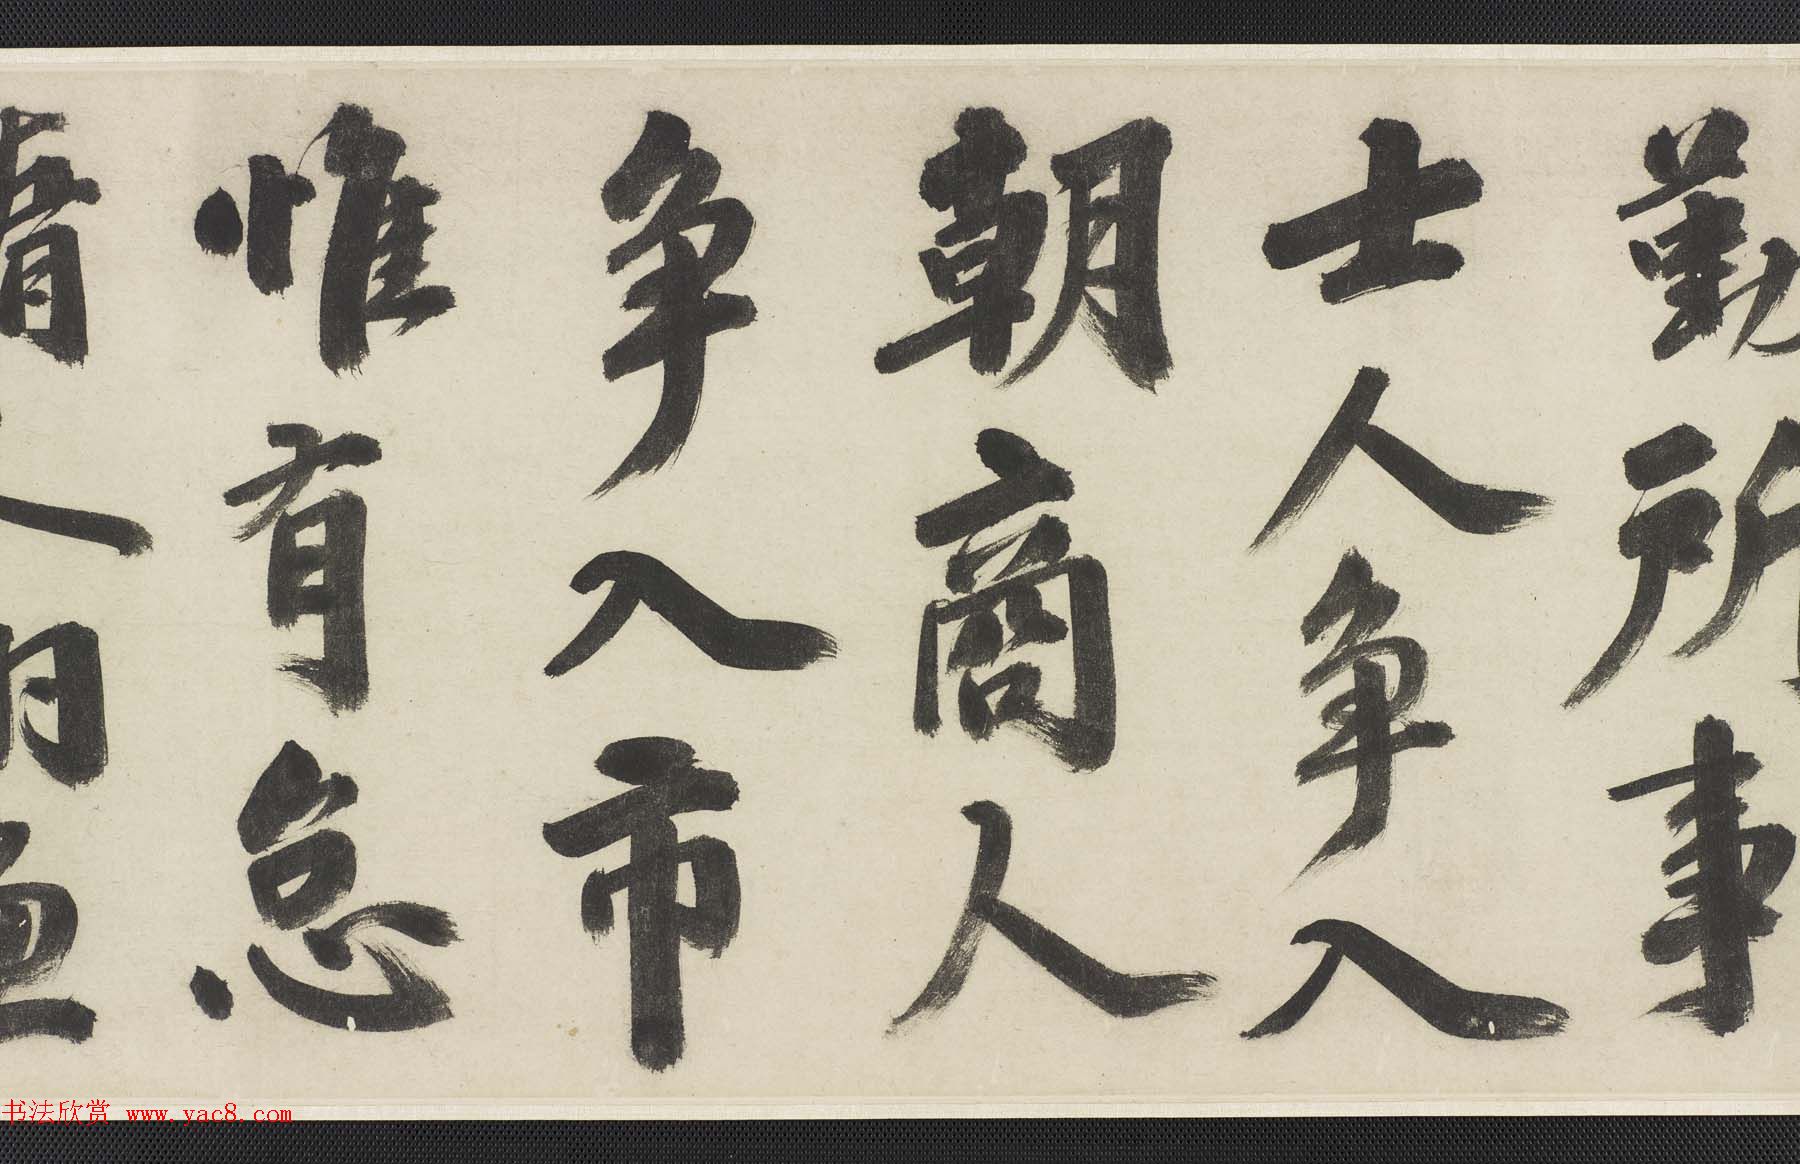 勤所事
士人争入
朝商人
争入市
惟有怠
惰人
书法欣赏 www.yac8.com